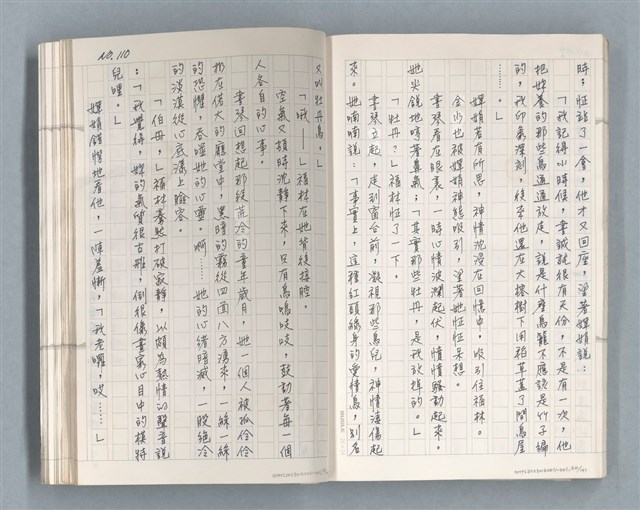 時，怔詰了一會，他才又回座，望著嬋娟說：
「我記得小時候，韋誠就很有天份，不是有一次，他
把妳養的那些鳥通通放走，說是什麼鳥籠不應該是竹子編
的，我印象深刻，後來他還在大榕樹下用稻草蓋了間鳥屋
……。」
嬋娟若有所思，神情沈浸在回憶中，吸引住福林。
金山也被嬋娟神態吸引，望著她怔怔呆想。
韋琴看在眼裏，一時心情波瀾起伏，憤憤騷動起來。
她尖銳地哼著鼻氣：「其實那些牡丹，是我放掉的。」
「牡丹？」福林怔了一下。
韋琴立起，走到窗台前，凝視那些鳥兒，神情淒傷起
來。她喃喃說：「事實上，這種紅頭綠身的愛情鳥，別名
又叫牡丹鳥。」
「哦——」福林在她背後接腔。
空氣又頓時沈靜下來，只有鳥鳴吱吱，鼓動著每一個
人各自的心事。
韋琴回想起那段荒冷的童年歲月，她一個人被孤伶伶
拋在偌大的廳堂中，黑暗的霧從四面八方湧來，一絲一絲
的恐懼，吞噬她的心靈。啊…… 她的心緒暗滅，一股絕冷
的淡漠從心底湧上臉容。
「伯母，」福林驀然打破寂靜，以頗為熱情的聲音說
：「我覺得，妳的氣質很古雅，倒很像畫家心目中的模特
兒哩。」
嬋娟錯愕地看他，一陣羞慚，「我老囉，哎……」
NO. 110